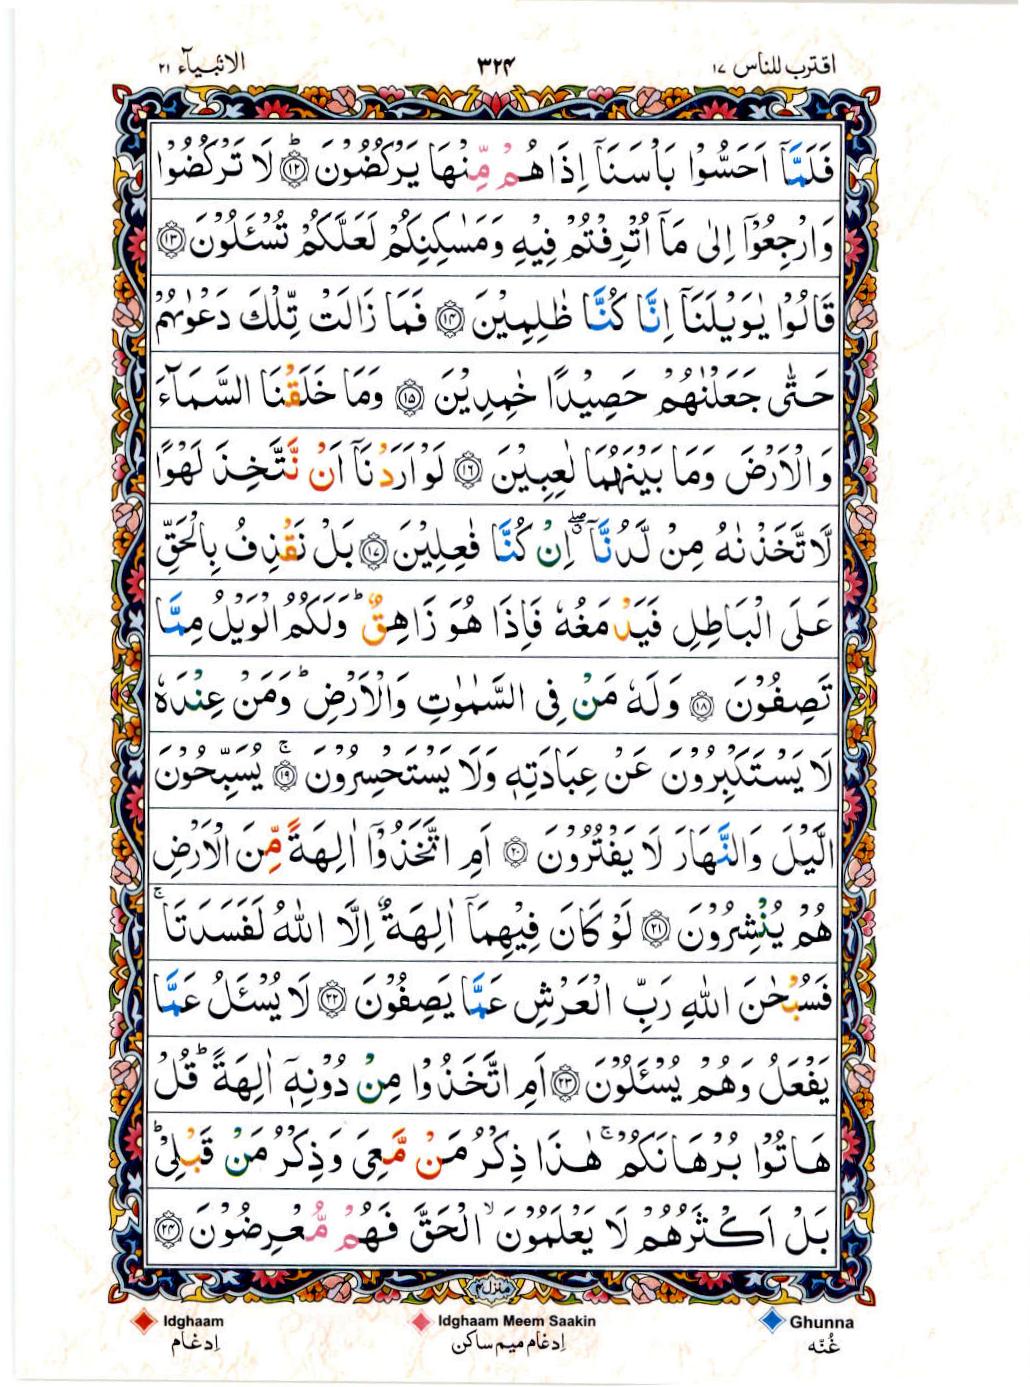 اقترب للناس ١٧
٣٢٤
الانبيآء ٢١
فَلَمَّاۤ اَحَسُّوْا بَاْسَنَاۤ اِذَا هُمْ مِّنْهَا يَرْكُضُوْنَ ؕ﴿۱۲﴾ لَا تَرْكُضُوْا
وَارْجِعُوْۤا اِلٰى مَاۤ اُتْرِفْتُمْ فِيْهِ وَمَسٰكِنِكُمْ لَعَلَّكُمْ تُسْئَلُوْنَ ﴿۱۳﴾
قَالُوْا يٰوَيْلَنَاۤ اِنَّا كُنَّا ظٰلِمِيْنَ ﴿۱۴﴾ فَمَا زَالَتْ تِّلْكَ دَعْوٰىهُمْ
حَتّٰى جَعَلْنٰهُمْ حَصِيْدًا خٰمِدِيْنَ ﴿۱۵﴾ وَمَا خَلَقْنَا السَّمَآءَ
وَالْاَرْضَ وَمَا بَيْنَهُمَا لٰعِبِيْنَ ﴿۱۶﴾ لَوْ اَرَدْنَاۤ اَنْ نَّتَّخِذَ لَهْوًا
لَّاتَّخَذْنٰهُ مِنْ لَّدُنَّاۤ ۖ اِنْ كُنَّا فٰعِلِيْنَ ﴿۱۷﴾ بَلْ نَقْذِفُ بِالْحَقِّ
عَلَى الْبَاطِلِ فَيَدْمَغُهٗ فَاِذَا هُوَ زَاهِقٌ ؕ وَلَكُمُ الْوَيْلُ مِمَّا
تَصِفُوْنَ ﴿۱۸﴾ وَلَهٗ مَنْ فِى السَّمٰوٰتِ وَالْاَرْضِ ؕ وَمَنْ عِنْدَهٗ
لَا يَسْتَكْبِرُوْنَ عَنْ عِبَادَتِهٖ وَلَا يَسْتَحْسِرُوْنَ ۚ﴿۱۹﴾ يُسَبِّحُوْنَ
الَّيْلَ وَالنَّهَارَ لَا يَفْتُرُوْنَ ﴿۲۰﴾ اَمِ اتَّخَذُوْۤا اٰلِهَةً مِّنَ الْاَرْضِ
هُمْ يُنْشِرُوْنَ ﴿۲۱﴾ لَوْ كَانَ فِيْهِمَاۤ اٰلِهَةٌ اِلَّا اللّٰهُ لَفَسَدَتَا ۚ
فَسُبْحٰنَ اللّٰهِ رَبِّ الْعَرْشِ عَمَّا يَصِفُوْنَ ﴿۲۲﴾ لَا يُسْئَلُ عَمَّا
يَفْعَلُ وَهُمْ يُسْئَلُوْنَ ﴿۲۳﴾ اَمِ اتَّخَذُوْا مِنْ دُوْنِهٖۤ اٰلِهَةً ؕ قُلْ
هَاتُوْا بُرْهَانَكُمْ ۚ هٰذَا ذِكْرُ مَنْ مَّعِىَ وَذِكْرُ مَنْ قَبْلِىْ ؕ
بَلْ اَكْثَرُهُمْ لَا يَعْلَمُوْنَ ۙ الْحَقَّ فَهُمْ مُّعْرِضُوْنَ ﴿۲۴﴾
منزل ٤
Idghaam Idghaam Meem Saakin Ghunna
اِدغام اِدغام میم ساکن غُنّه